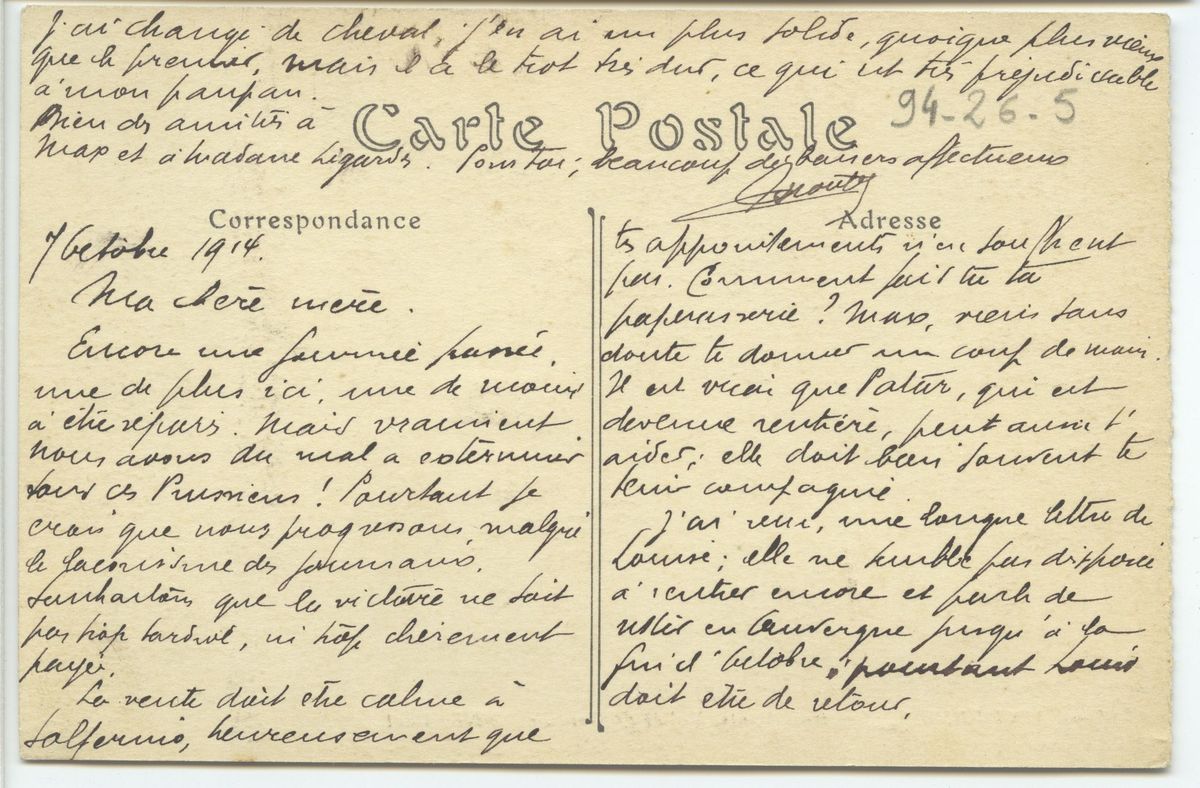 J'ai changé de cheval, j'en ai un plus solide, quoique plus vieux
que le premier, mais il a le trot très dur, ce qui est très préjudiciable
à mon panpan.
Bien des amitiés à
Carte Postale
94-26-5
Max et à Madame Ligardes. Pour toi; beaucoup de baisers affectueux
Correspondance
Adresse
7 Octobre 1914.
Ma chère mère.
Encore une journée passée,
une de plus ici, une de moins
à être séparés. Mais vraiment
nous avons du mal a exterminer
tous ces Prussiens! Pourtant je
crois que nous progressons, malgré
le laconisme des journaux.
Souhaitons que la victoire ne soit
pas trop tardive, ni trop chèrement
payée.
La vente doit être calme à
Solferino, heureusement que
tes appointements n'en souffrent
pas. Comment fais tu ta
paperasserie? Max, viens sans
doute te donner un coup de main.
Il est vrai que qui est
devenue rentière, peut aussi t'
aider; elle doit bien souvent te
tenir compagnie.
J'ai reçu, une longue lettre de
Louise; elle ne semble pas disposée
à rentrer encore et parle de
rester en Auvergne jusqu'à la
fin d'Octobre; pourtant Louis
doit être de retour.